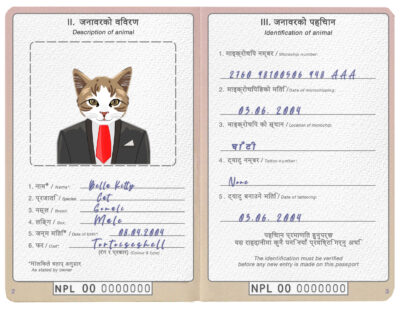 II. जनावरको विवरण
Description of animal
1. नाम* / Name*: Belle Kitty
2. प्रजाति / Species: Cat
3. नश्ल / Breed: Somali
4. लिङ्ग / Sex: Male
5. जन्म मिति* / Date of birth*: 08.04.2004
6. / Coat*: Tortoiseshell
(Colour & type)
As stated by owner
NPL 00 0000000
2
III. जनावरको पहिचान
Identification of animal
1. माइक्रोचिप नम्बर / Microchip number:
2760 98100506 948 AAA
/ Date of microchipping:
03.06.2004
/ Location of microchip:
घाँटी
4. ट्याटु नम्बर / Tattoo number:
None
5. ट्याटु बनाउने मिति / Date of tattooing:
03.06.2004
The identification must be verified
before any new entry is made on this passport
NPL 00 0000000
3